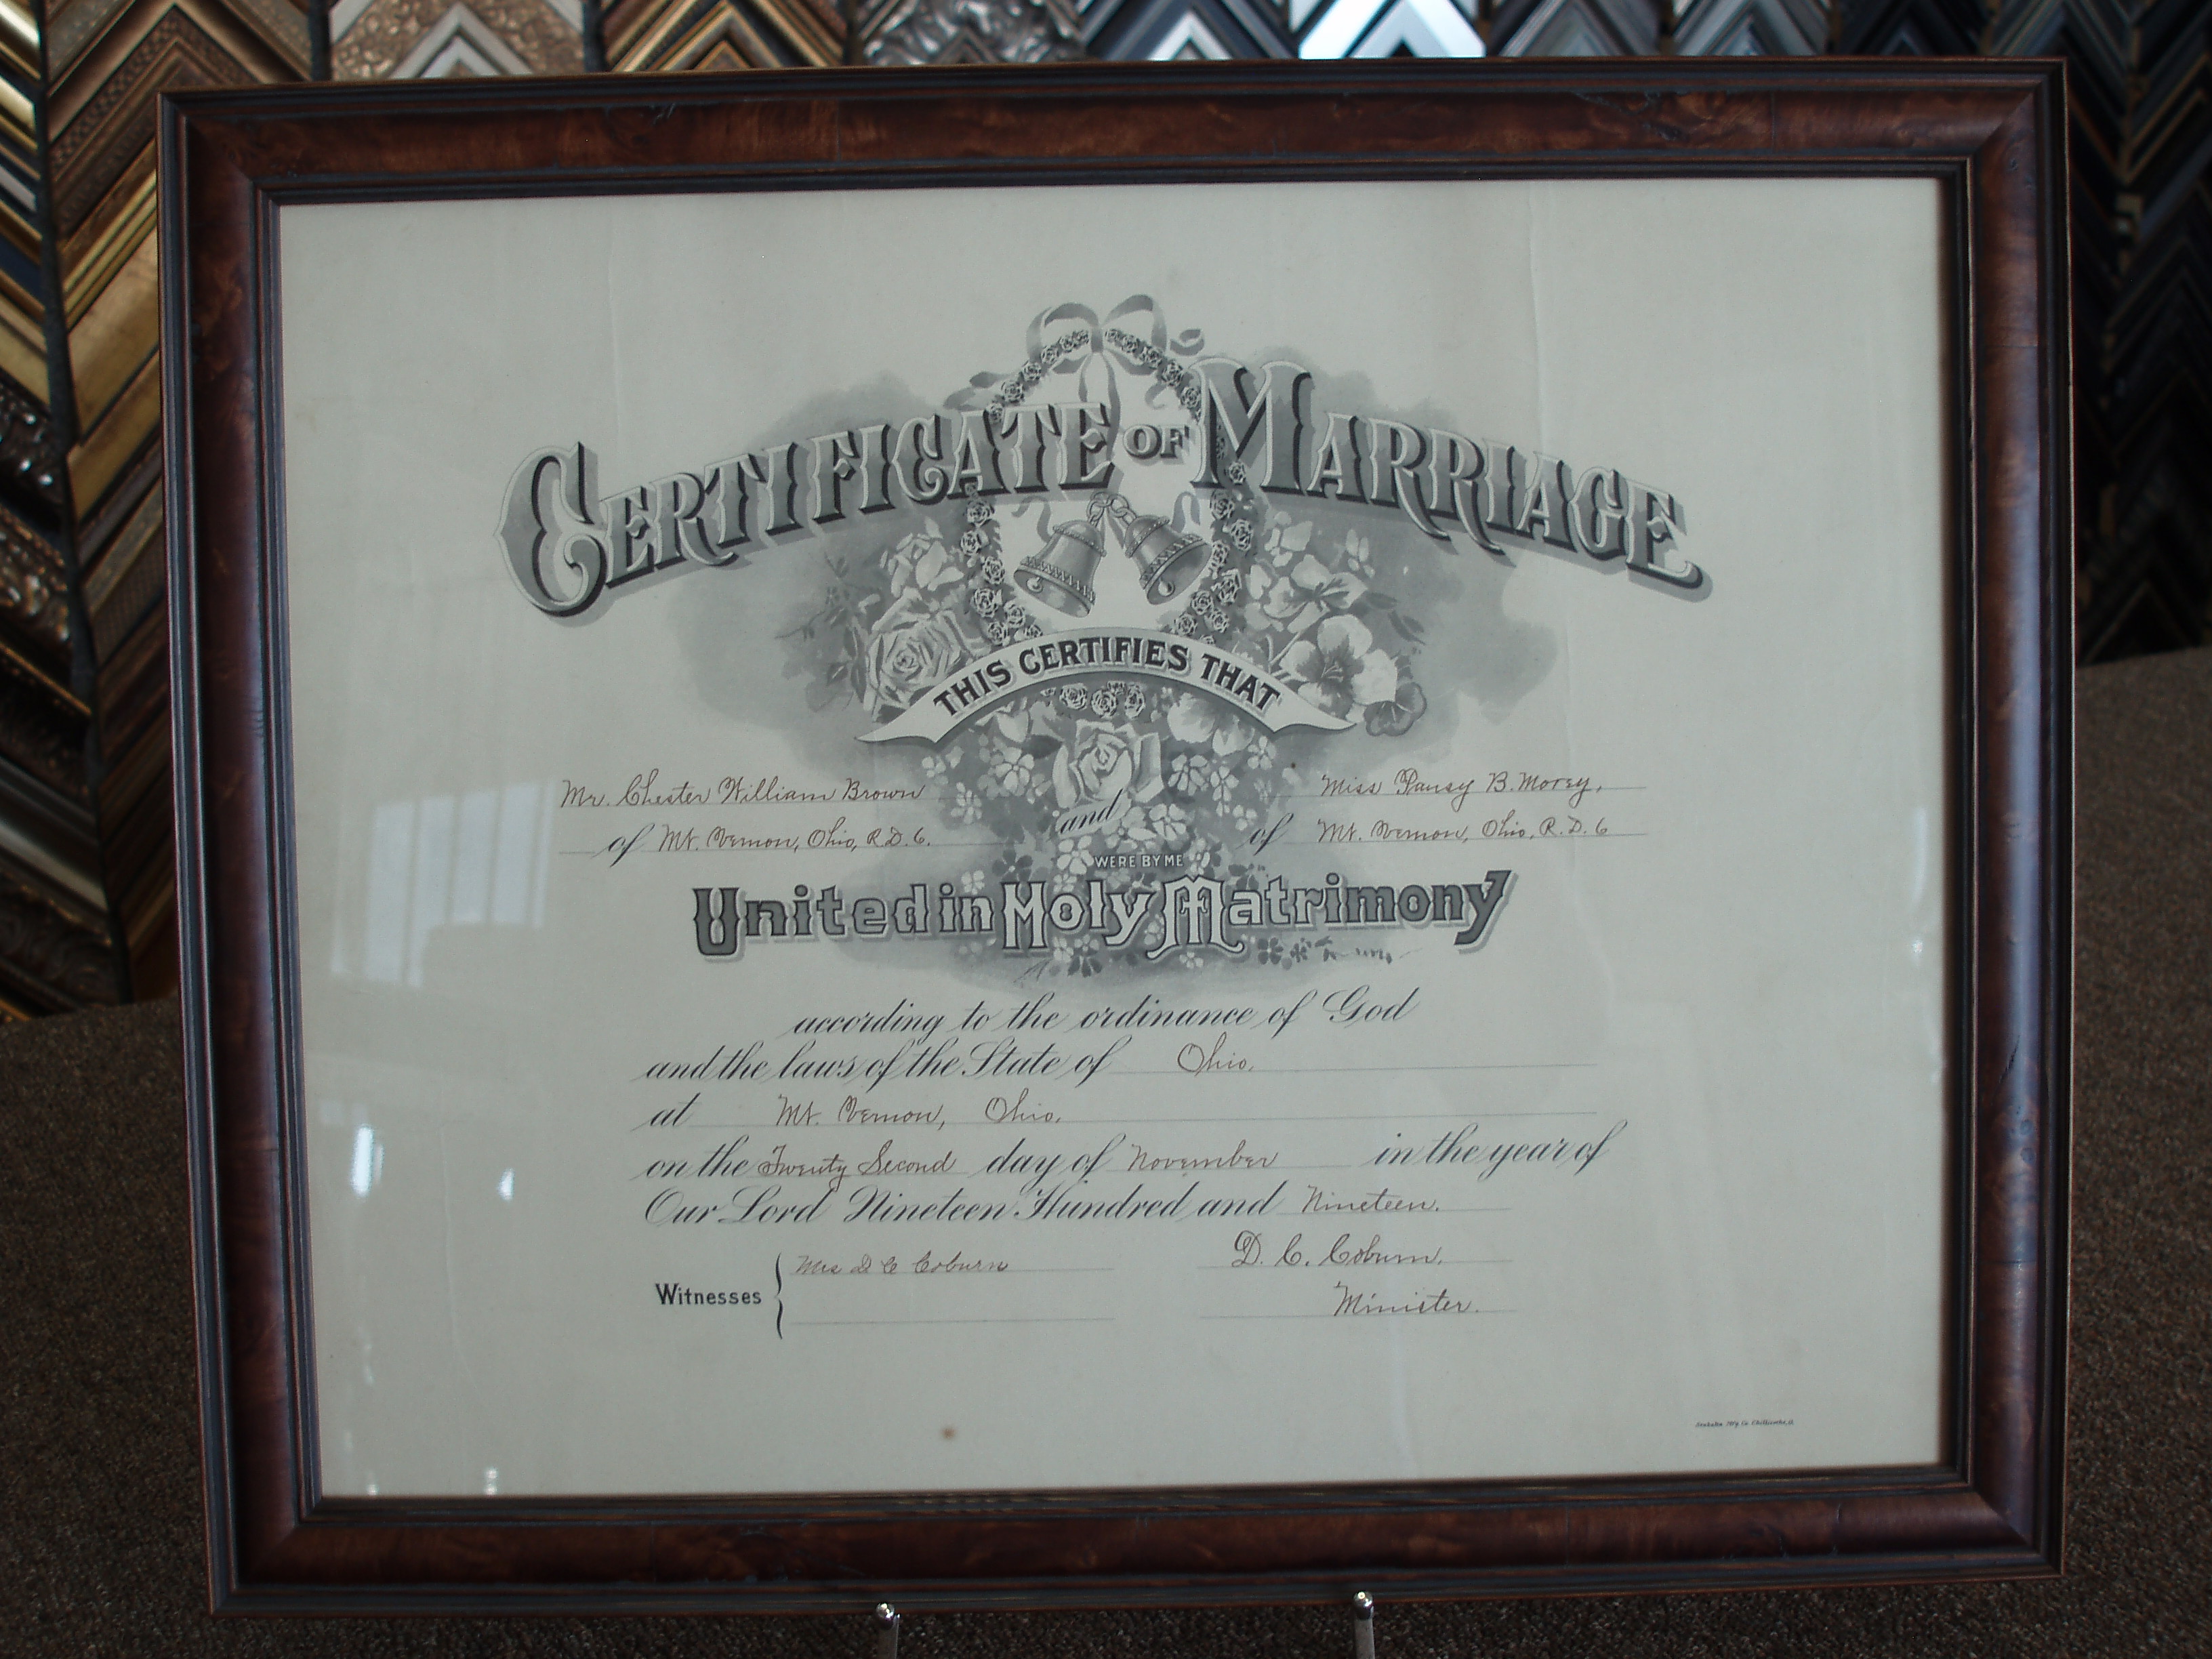 CERTIFICATE OF MARRIAGE
THIS CERTIFIES THAT
Mr. Chester William Brown and Miss Pansy B. Morey,
of Mt. Vernon, Ohio, R.D. 6. of Mt. Vernon, Ohio, R.D. 6
WERE BY ME
United in Holy Matrimony
according to the ordinance of God
and the laws of the State of Ohio.
at Mt. Vernon, Ohio.
on the Twenty Second day of November in the year of
Our Lord Nineteen Hundred and Nineteen.
Witnesses Mrs D C Coburn D. C. Coburn.
Minister.